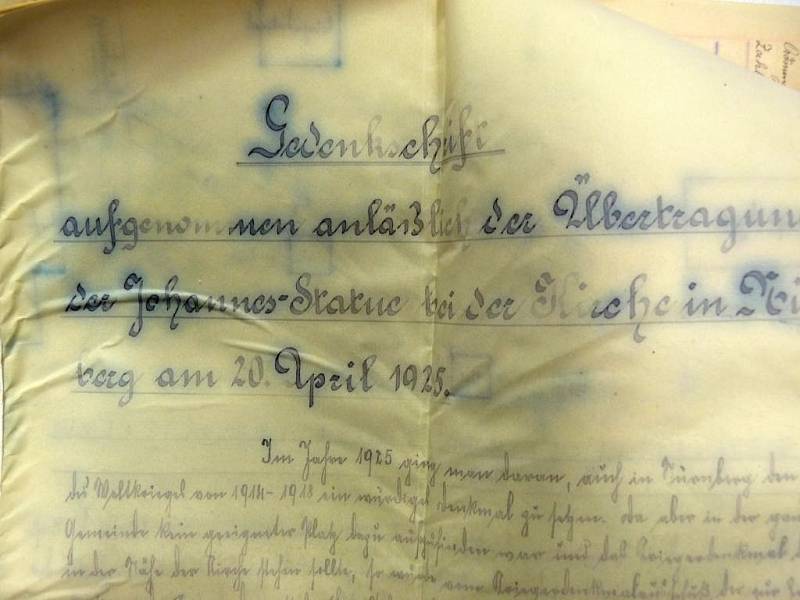 Gedenkschrift
aufgenommen anläßlich der Übertragun
der Johannes-Statue bei der Kirche in Ni
berg am 20. April 1925.
Im Jahre 1925 ging man daran, auch in Nürnberg den
des Weltkrieges von 1914-1918 ein würdiges Denkmal zu setzen. Da aber in der gan
Gemeinde kein geeigneter Platz dazu aufzufinden war und das Kriegerdenkmal
in der Nähe der Kirche stehen sollte, so wurde vom Kriegerdenkmalausschuß der zur